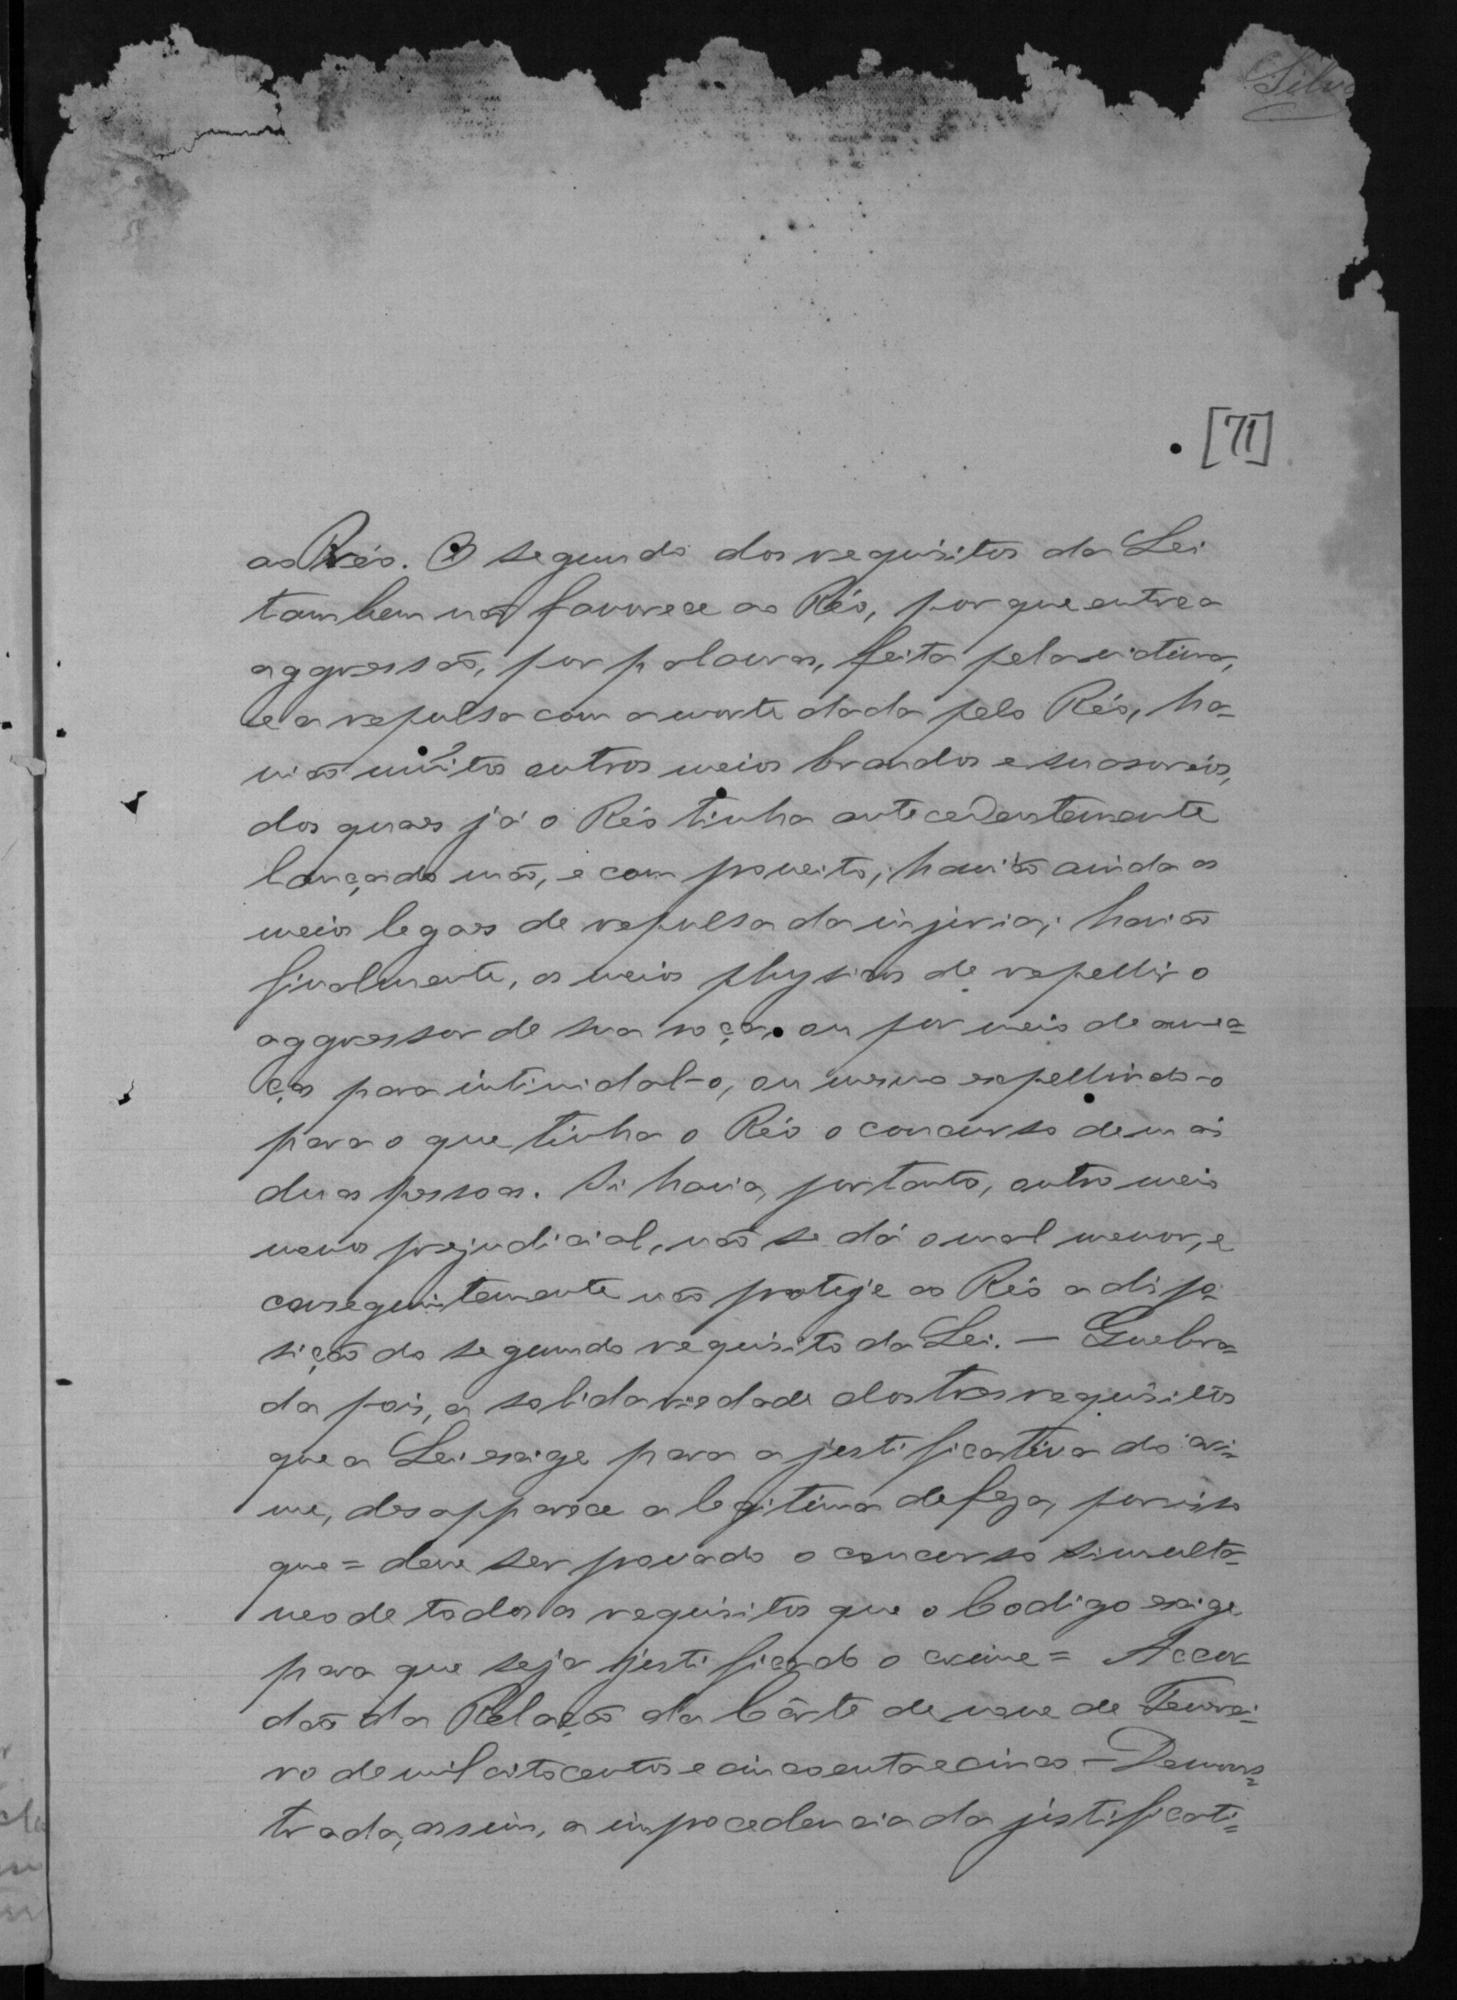 Silva
[71]
ao Réo. O segundo dos requisitos da Lei
tambem não favorece ao Réo, por que entre a
aggressão, por palavras, feita pela victima,
e a repulsa com a morte dada pelo Réo, ha-
vião muitos outros meios brandos e suasorios,
dos quaes já o Réo tinha antecedentemente
lançado mão, e com proveito; havião ainda os
meios legaes de repulsa da injuria; havião
finalmente, os meios physicos de repellir o
aggressor de sua roça, ou por meio de amea=
ças para intimidal-o, ou mesmo expellindo-o
para o que tinha o Réo o concurso de mais
duas pessoas. Si havia, portanto, outro meio
menos prejudicial, não se dá o mal menor, e
conseguintemente não proteje ao Réo a dispo-
sição do segundo requisito da Lei. — Quebra=
da pois, a solidariedade dos tres requisitos
que a Lei exige para a justificativa do cri=
me, desapparece a legitima defeza, por isso
que = deve ser provado o concurso simulta=
neo de todos os requisitos que o Codigo exige
para que seja justificado o crime = Accor
dão da Relação da Côrte de nove de Feverei-
ro de mil oitocentos e cincoenta e cinco — Demons=
trada, assim, a improcedencia da justificati=